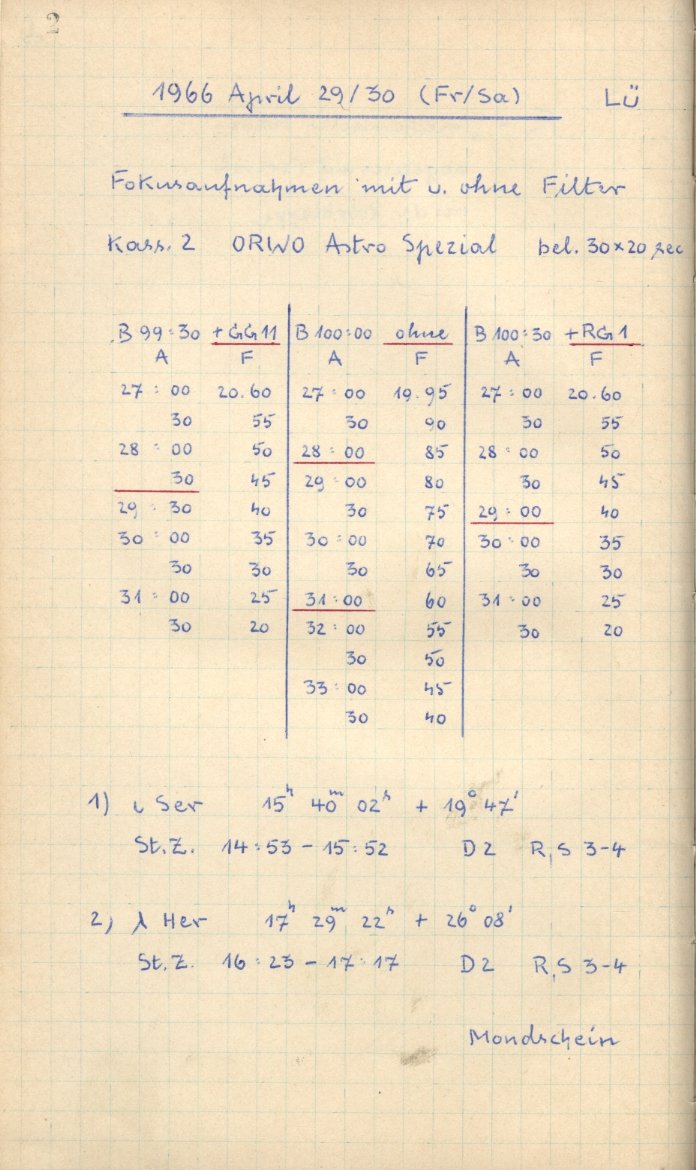 2
1966 April 29/30 (Fr/Sa) LÜ
Fokusaufnahmen mit u. ohne Filter
Kass. 2 ORWO Astro Spezial bel. 30×20 sec
B 99:30 + GG11 B 100:00 ohne B 100:30 + RG1
A F A F A F
27:00 20.60 27:00 19.95 27:00 20.60
30 55 30 90 30 55
28:00 50 28:00 85 28:00 50
30 45 29:00 80 30 45
29:30 40 30 75 29:00 40
30:00 35 30:00 70 30:00 35
30 30 30 65 30 30
31:00 25 31:00 60 31:00 25
30 20 32:00 55 30 20
30 50
33:00 45
30 40
1) ι Ser 15ʰ 40ᵐ 02ˢ + 19° 47'
St.Z. 14:53 – 15:52 D2 R,S 3-4
2) λ Her 17ʰ 29ᵐ 22ˢ + 26° 08'
St.Z. 16:23 – 17:17 D2 R,S 3-4
Mondschein